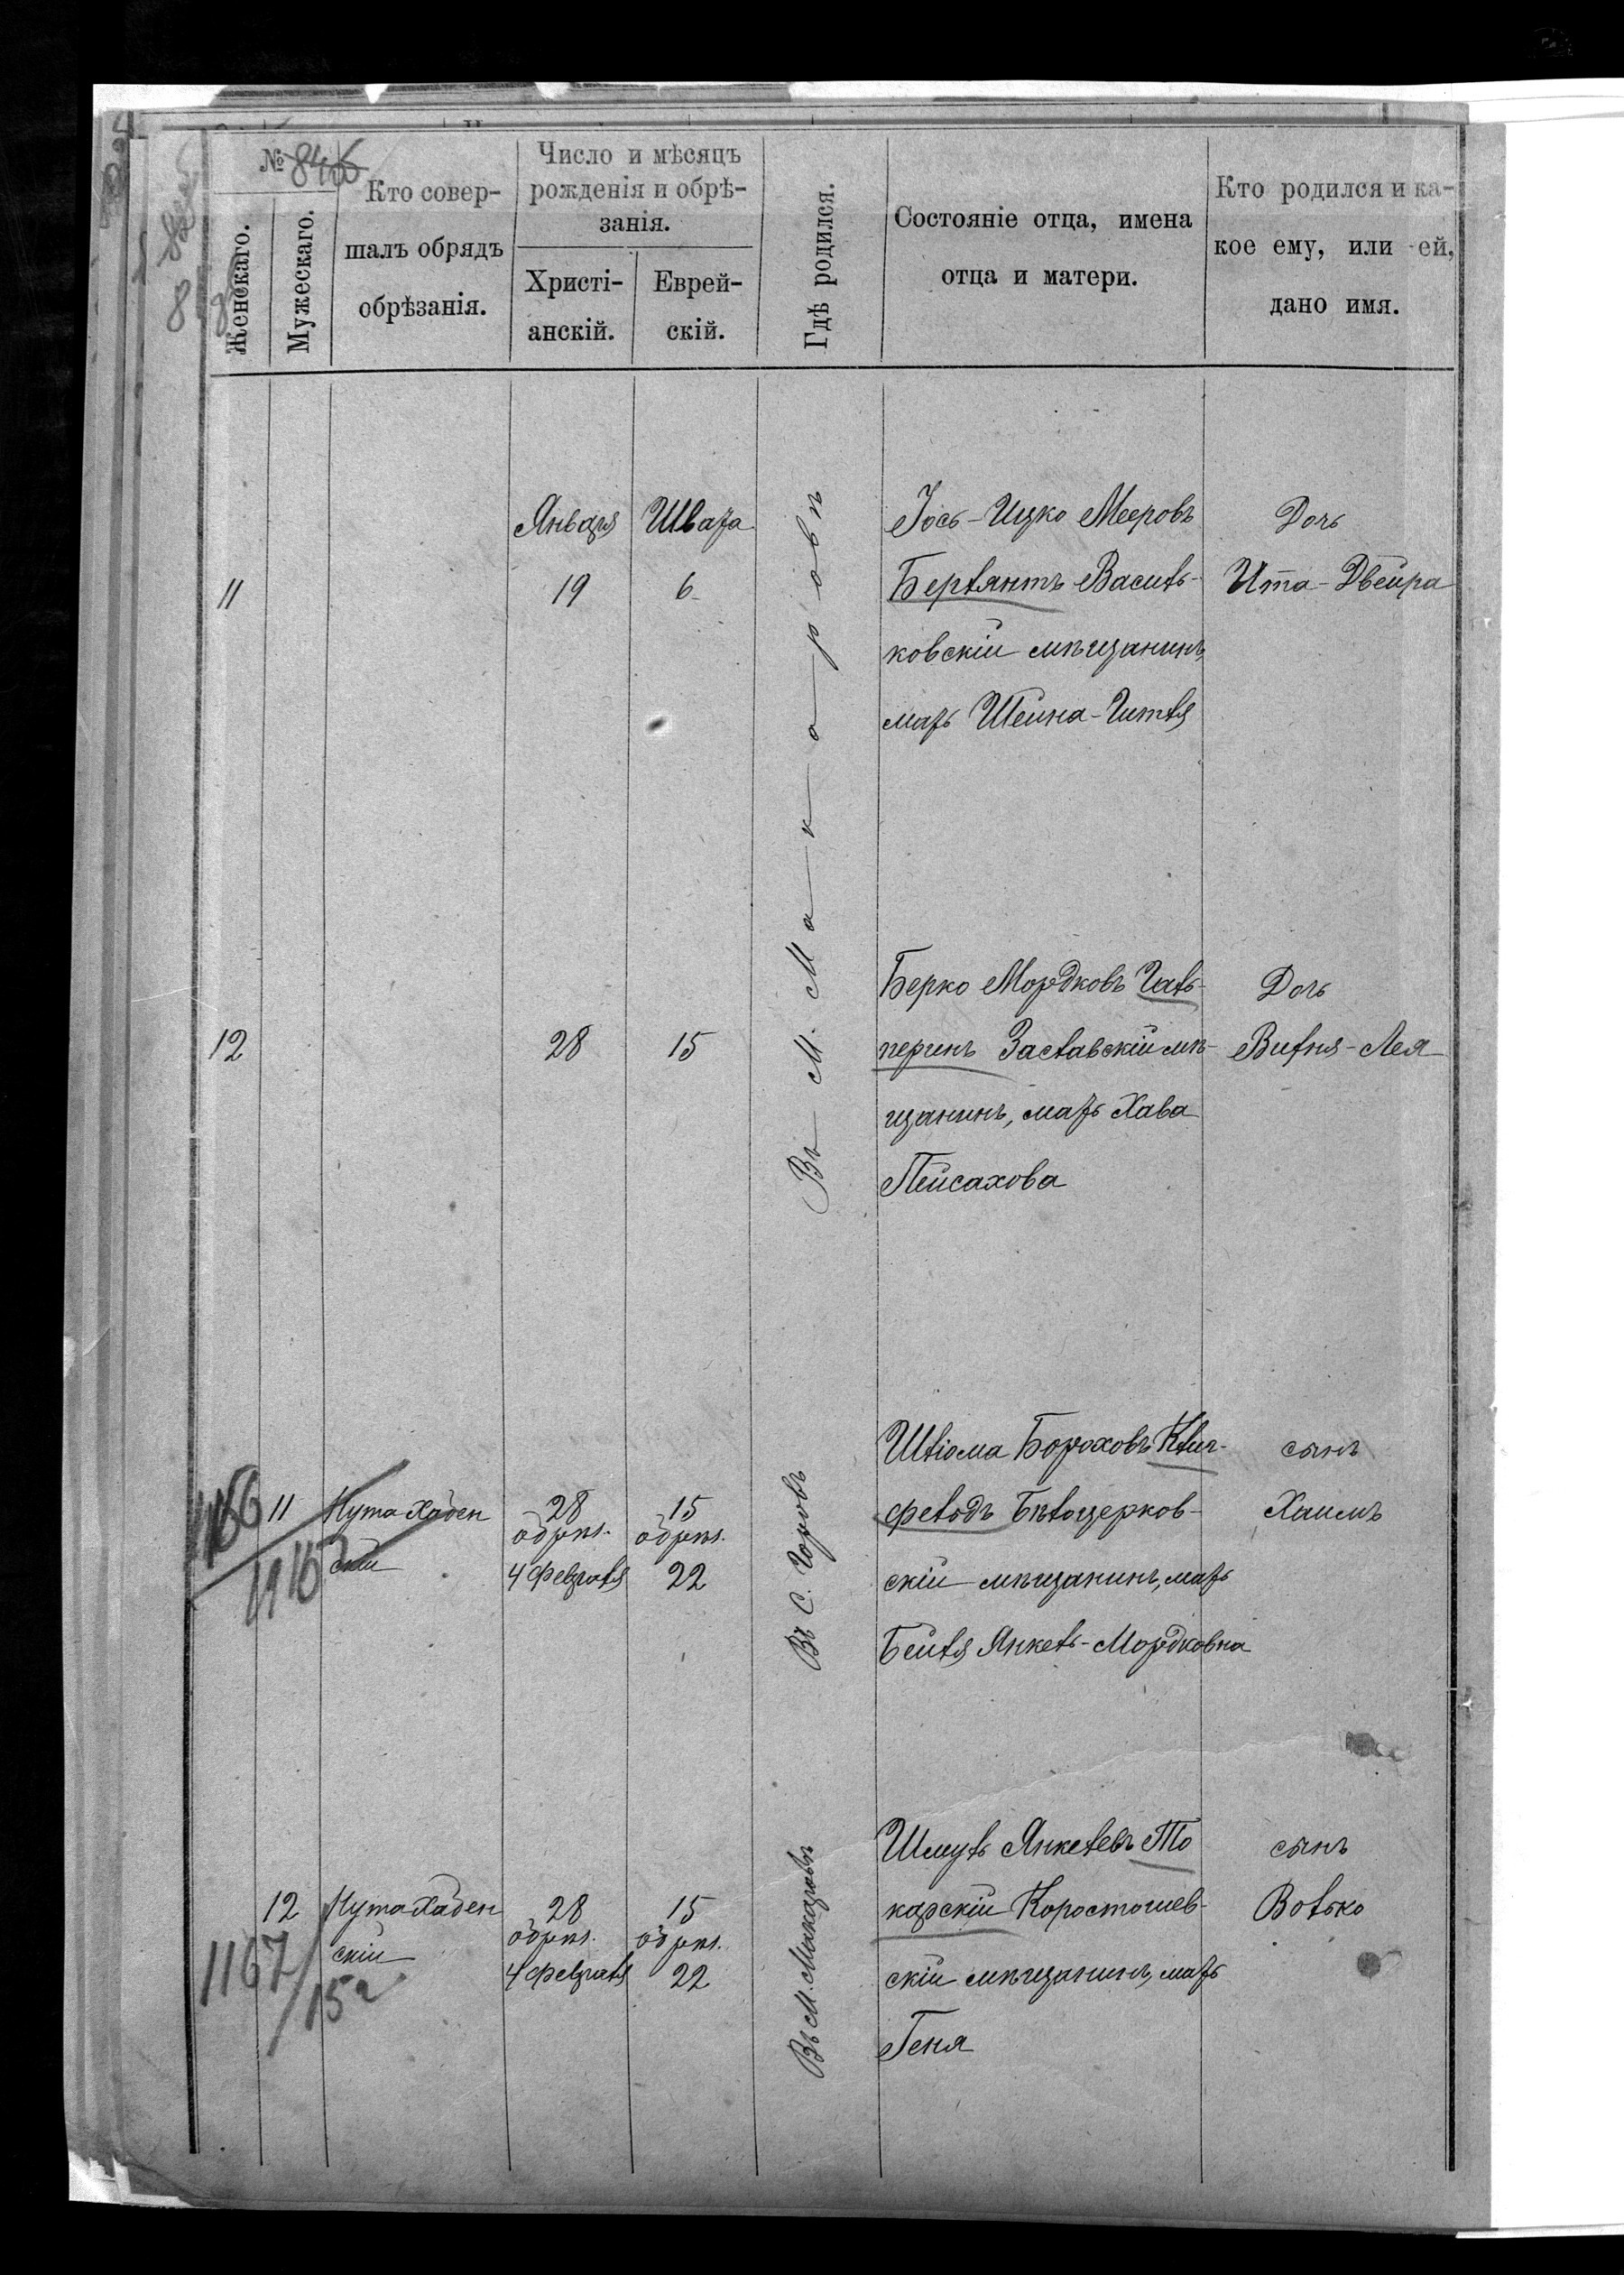 № 846
Женскаго.
Мужескаго.
Кто совер-
шалъ обрядъ
обрѣзанія.
Число и мѣсяцъ
рожденія и обрѣ-
занія.
Христі-
анскій.
Еврей-
скій.
Гдѣ родился.
Состояніе отца, имена
отца и матери.
Кто родился и ка-
кое ему, или ей,
дано имя.
Января Швата
11 19 6
Въ М. Макаровѣ
Іось-Ицко Мееровъ
Берлянтъ Василь-
ковскій мѣщанинъ,
мать Шейна-Гитля
Дочь
Ита-Двейра
12 28 15
Берко Мордковъ Галь-
перинъ Заславскій мѣ-
щанинъ, мать Хава
Пейсахова
Дочь
Вилня-Лея
11 Нута Ходен
скій
28 15
обрѣз. обрѣз.
4 Февраля 22
Въ С.
Шліома Бороховъ Клиг-
фелодъ Бѣлоцерков-
скій мѣщанинъ, мать
Бейля Янкель-Мордковна
сынъ
Хаимъ
12 Нута Ходен
скій
1167/152
28 15
обрѣз. обрѣз.
4 Февраля 22
Въ М. Макаровѣ
Шмуль Янкелевъ То
карскій Коростышев-
скій мѣщанинъ, мать
Геня
сынъ
Волько